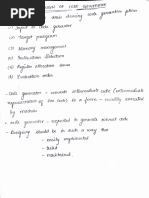 OF CODE GENERATOR
arise during code generation phase
(1) Input to code generator
(2) Target program
(3) Memory management
(4) Instruction Selection
(5) Register allocation issues
(6) Evaluation order
- Code generator - converts intermediate code (intermediate
representation of source code) to a form - readily executed
by machine
- code generator - expected to generate correct code
- Designing should be in such a way that
- easily implemented
- tested
- maintained.